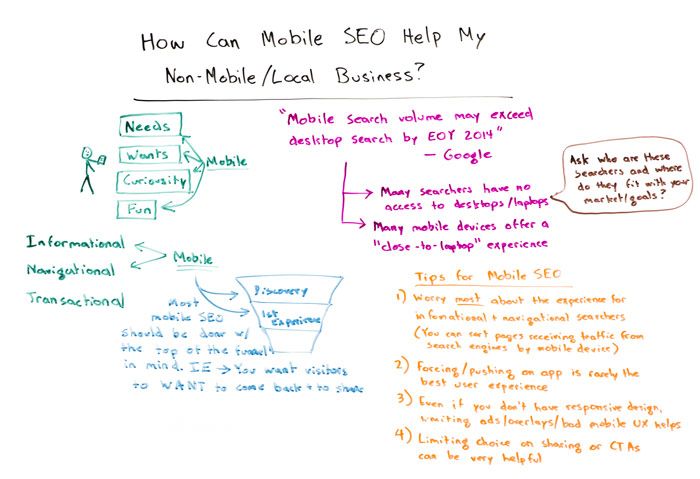 How Can Mobile SEO Help My
Non-Mobile/Local Business?
Needs
Wants
Curiousity
Fun
Mobile
"Mobile search volume may exceed
desktop search by EOY 2014"
— Google
Many searchers have no
access to desktops/laptops
Many mobile devices offer a
"close-to-laptop" experience
Ask who are these
searchers and where
do they fit with your
market/goals?
Informational
Navigational
Transactional
Mobile
Discovery
1st Experience
Most
mobile SEO
should be done w/
the top of the funnel
in mind. IE → You want visitors
to WANT to come back + to share
Tips for Mobile SEO
1) Worry most about the experience for
informational + navigational searchers
(You can sort pages receiving traffic from
search engines by mobile device)
2) Forcing/pushing an app is rarely the
best user experience
3) Even if you don't have responsive design,
limiting ads/overlays/bad mobile UX helps
4) Limiting choice on sharing or CTAs
can be very helpful